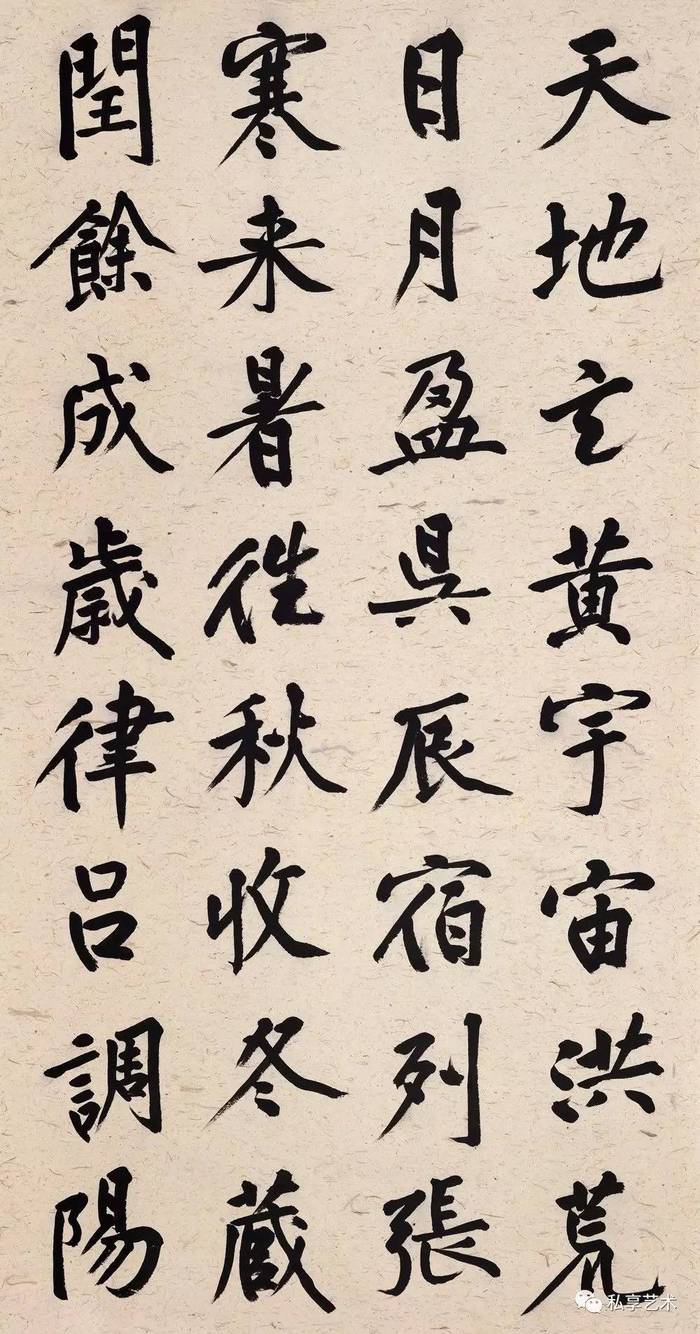 天地玄黄宇宙洪荒
日月盈昃辰宿列張
寒来暑往秋收冬蔵
閏餘成歳律吕調陽
私享艺术